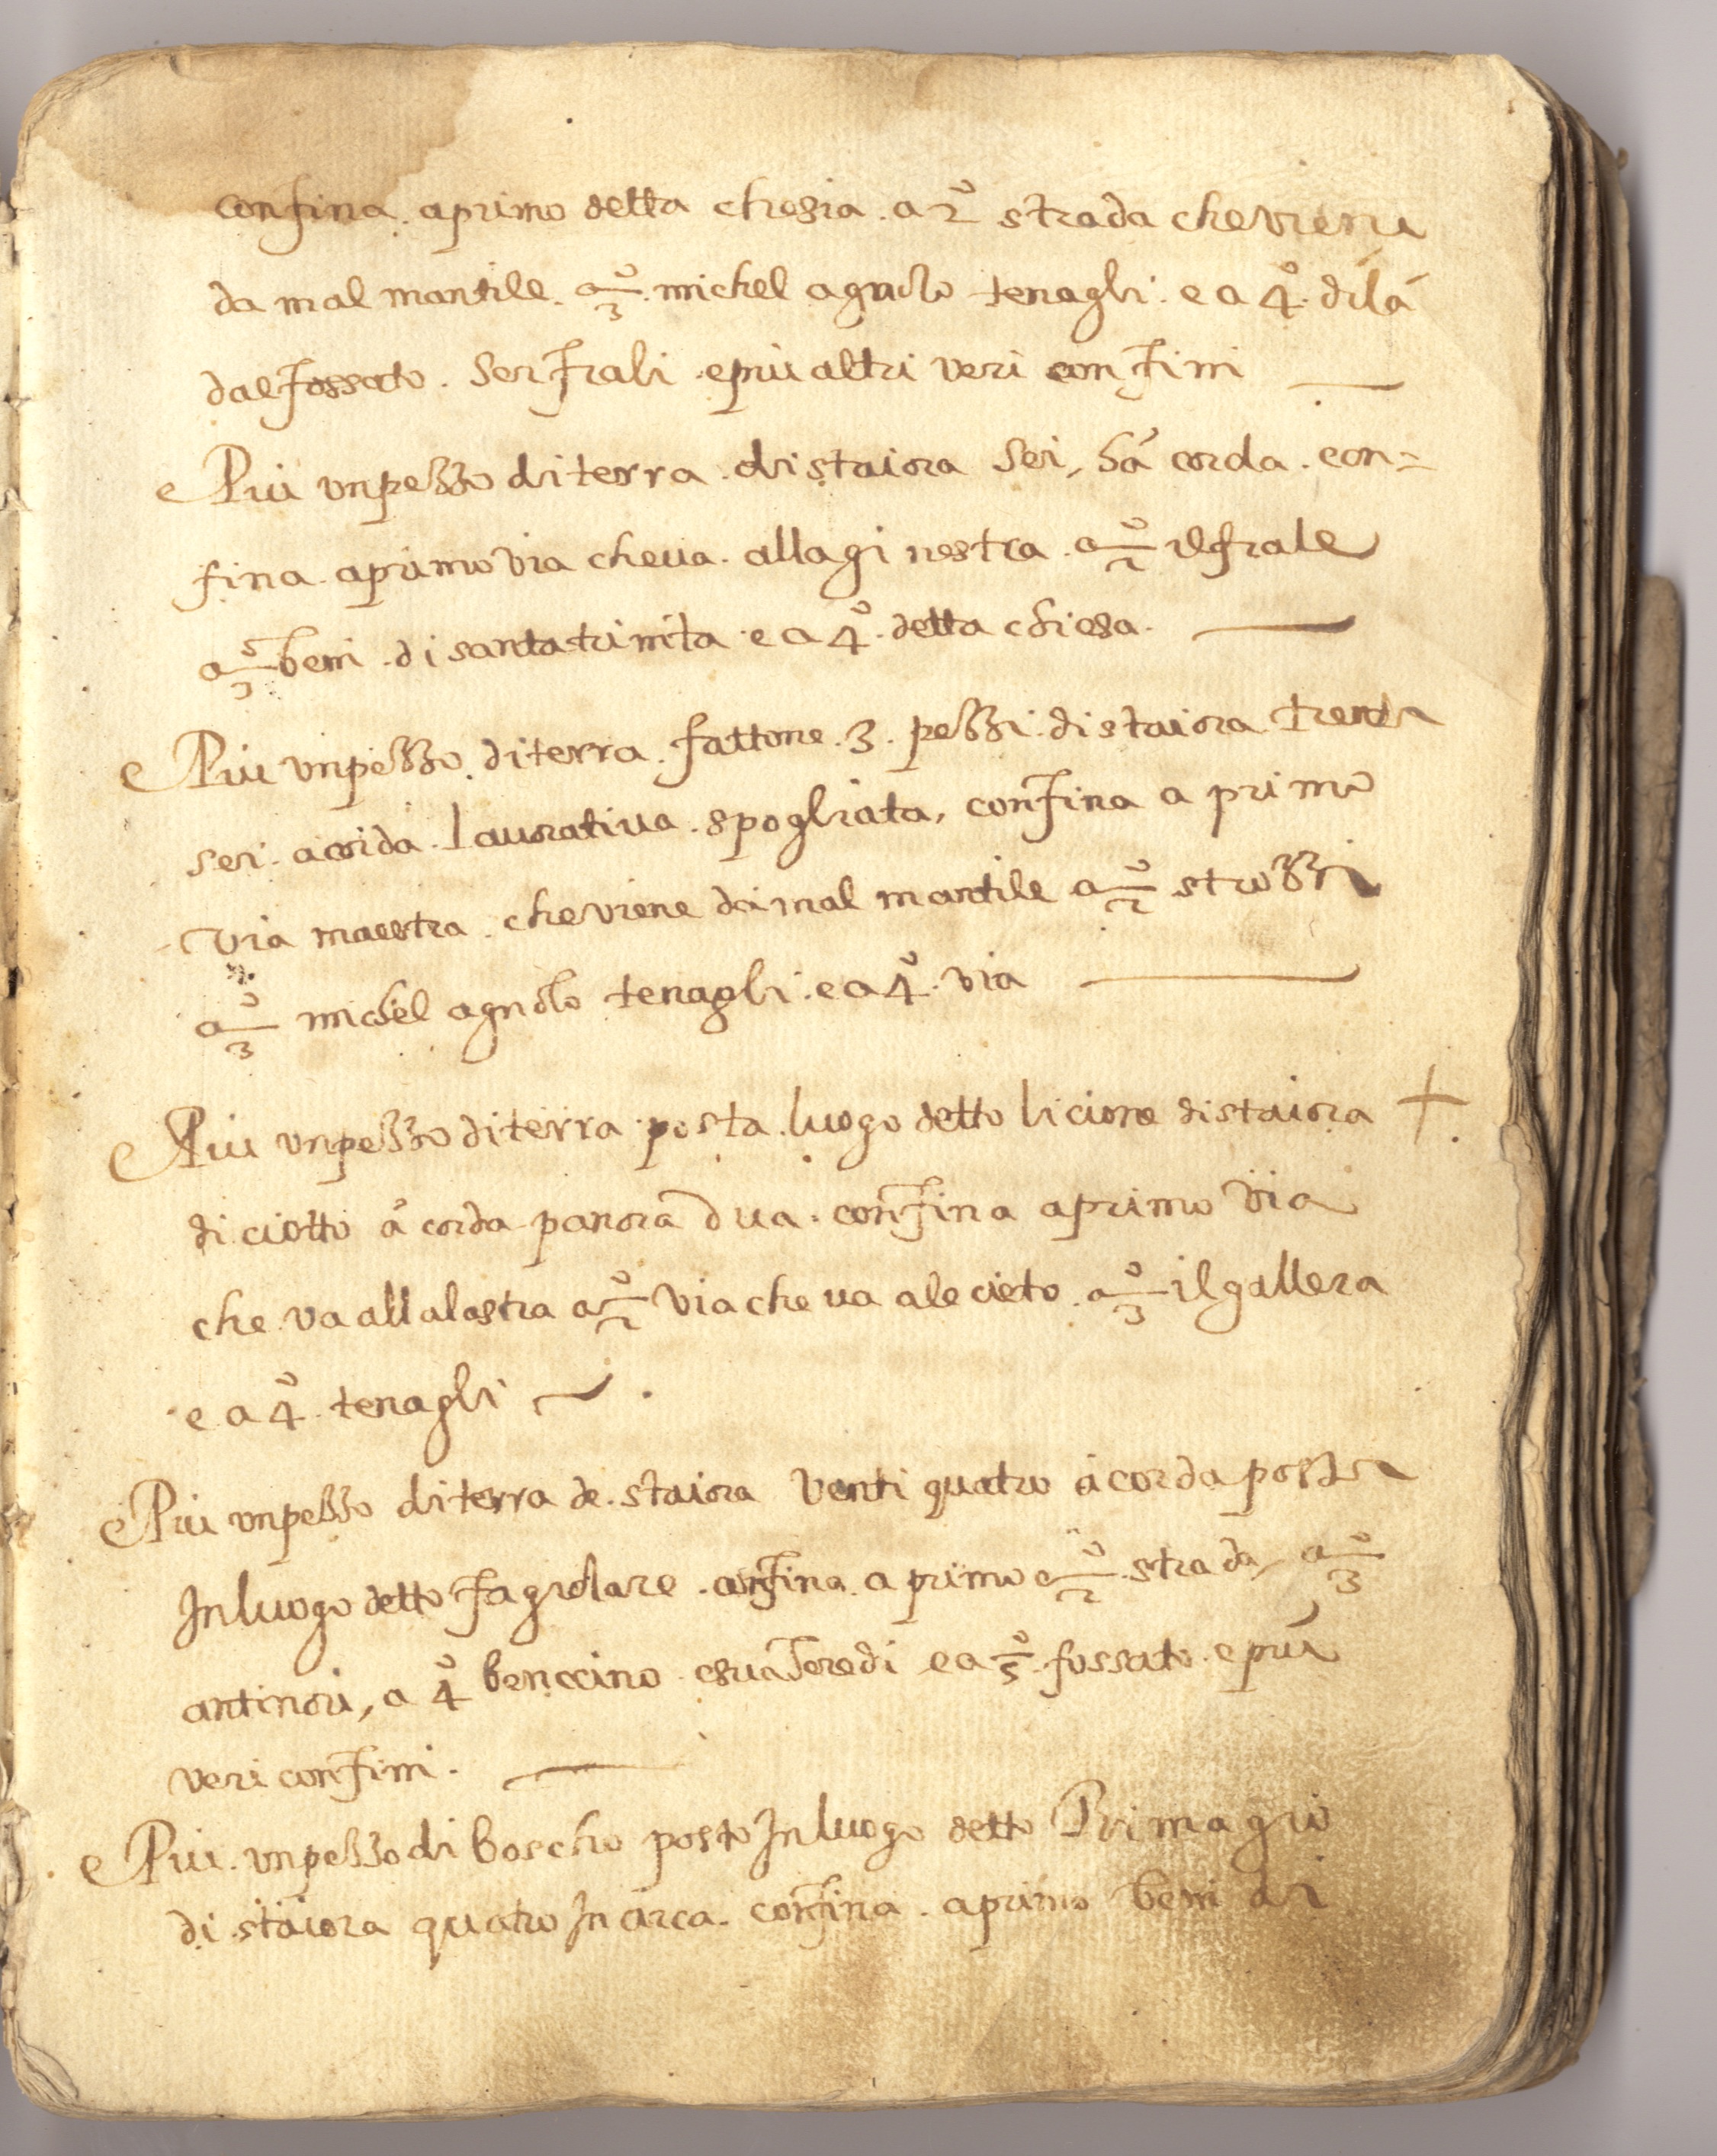 confina . aprimo detta chesia . a 2º strada che viene
da mal mantile . a 3º . michel agnolo tenagli . e a 4º . dilá
dal fossato . Ser frali . epiu altri veri confini
Piu unpezzo diterra . distaiora Sei, há corda . con=
fina . aprimo via cheva . alla ginestra . a 2º il frale
a 3º beni . di santa trinita . e a 4º . detta chiesa .
Piu unpezzo . diterra . fattone . 3 . pezzi . distaiora trenta
sei . acorda . lavorativa . spogliata, confina a primo
via maestra . cheviene da mal mantile a 2º strozzi
a 3º michel agnolo tenagli . e a 4º . via
Piu unpezzo diterra . posta . luogo detto licione distaiora +
diciotto á corda panora dua . confina aprimo via
che va allalastra a 2º via che va alecieto . a 3º il gallera
e a 4º . tenagli
Piu unpezzo diterra de . staiora venti quatro á corda posta
In luogo detto fagiolare . confina . a primo e 2º . strada, a 3º
antinori, a 4º benccino . e sua eredi e a 5º . fossato . e piu
veri confini .
Piu . unpezzo di boscho posto In luogo detto Primagio
di . staiora quatro In circa . confina . aprimo beni di